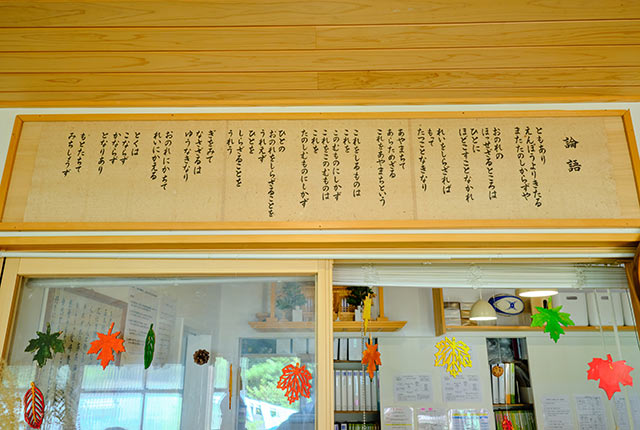 論語
ともあり
えんぽうよりきたる
またたのしからずや
おのれの
ほっせざるところは
ひとに
ほどこすことなかれ
れいをしらざれば
もって
たつことなきなり
あやまちて
あらためざる
これをあやまちという
これをしるものは
これを
このむものにしかず
これをこのむものは
これを
たのしむものにしかず
ひとの
おのれをしらざることを
うれえず
ひとを
しらざることを
うれう
ぎをみて
なさざるは
ゆうなきなり
おのれにかちて
れいにかえる
とくは
こならず
かならず
となりあり
もとたちて
みちしょうず